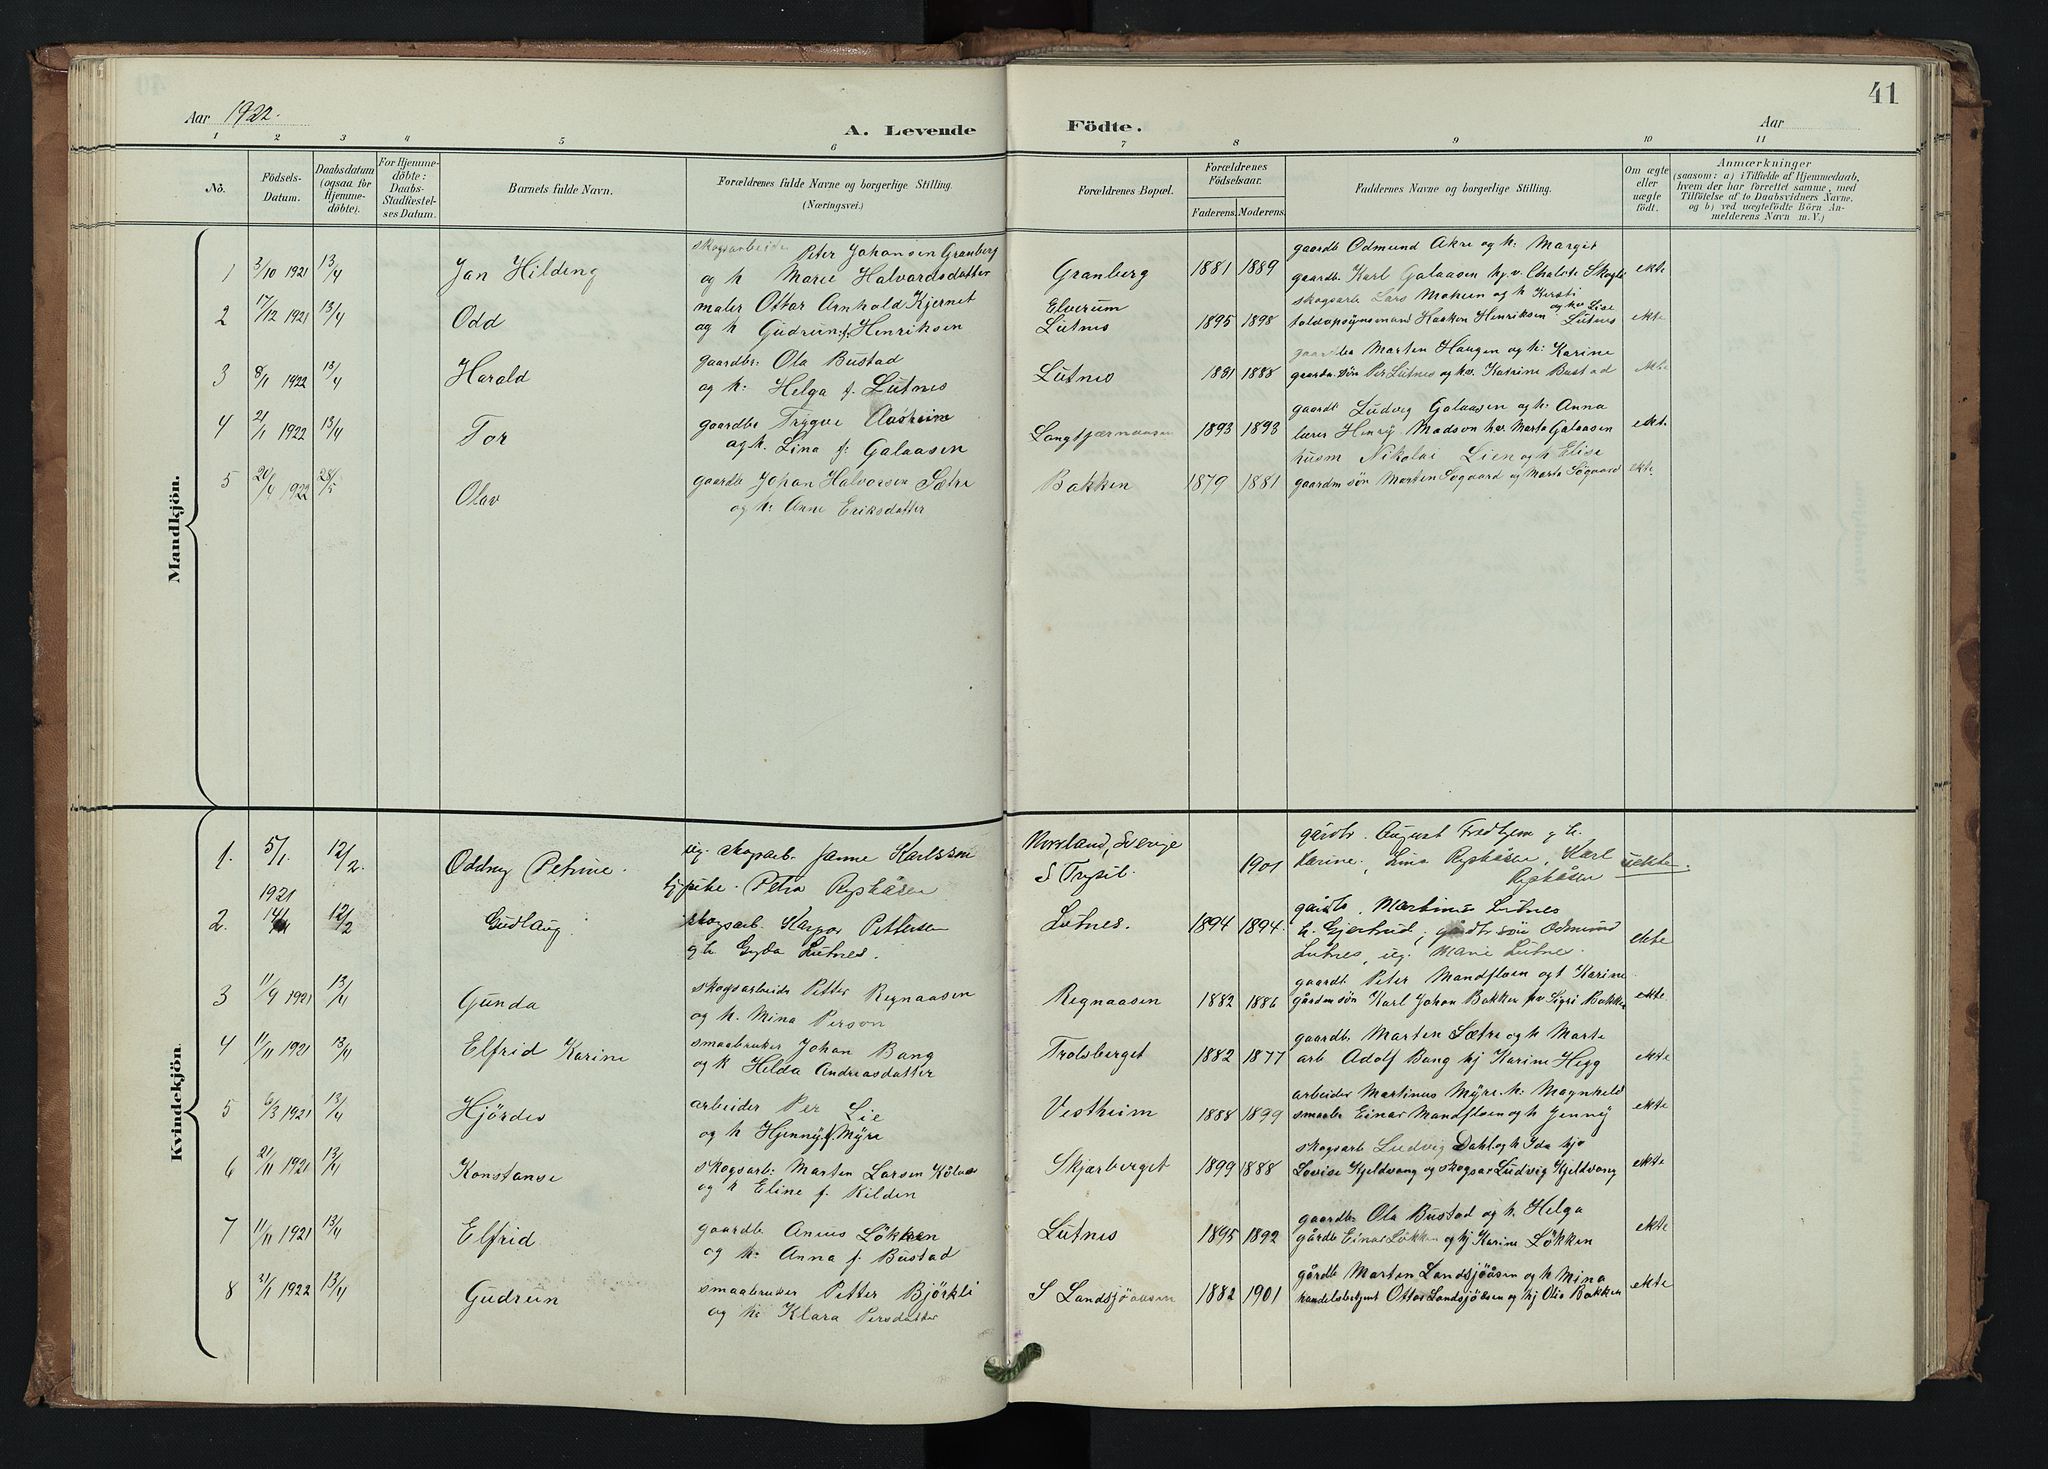 Aar 1922.
A. Levende Födte.
Aar
41
1 2 3 4 5 6 7 8 9 10 11
No.
Födsels-Datum.
Daabsdatum (ogsaa for Hjemme-döbte).
For Hjemme-döbte: Daabs-Stadfæstel-ses Datum.
Barnets fulde Navn.
Forældrenes fulde Navne og borgerlige Stilling. (Næringsvei.)
Forældrenes Bopæl.
Forældrenes Födselsaar.
Faderens. Moderens.
Faddernes Navne og borgerlige Stilling.
Om ægte eller uægte födt.
Anmærkninger
(saasom: a) i Tilfælde af Hjemmedaab, hvem der har forrettet samme, med Tilföielse af to Daabsvidners Navne, og b) ved uægtefödte Börn An-melderens Navn m. V.)
Mandkjön.
1 3/10 1921 13/4 Jan Hilding skogsarbeide Peter Johansen Granberg og h Marie Halvardsdatter Granberg 1881 1889 gaardb Odmund Akre og h: Margit gaardb. Karl Galaasen hj.v. Chalote ekte
2 17/12 1921 13/4 Odd maler Ottar Arnhold Kjernet og h Gudrun f. Henriksen Elverum Lutnes 1895 1898 skogsarb Lars Moheen og h Kirsti toldopsynsmand Haaken Henriksen og hv Lise Lutnes ekte
3 8/1 1922 13/4 Harald gaardbr: Ola Bustad og h: Helga f. Lutnes Lutnes 1881 1888 Marten Haugen og h: Karine gaardm. sön Per Lutnes og hv. Katrine Bustad ekte
4 21/1 1922 13/4 Tor gaardbr Trygve Aasheim og h. Lina f: Galaasen Langtjærnaasen 1893 1893 gaardb Ludvig Galaasen og h: Anna lærer Henry Madsen hv. Marta Galaasen ekt.
5 20/4 1922 28/5 Olav gaardb Johan Halvorsen Sætre og h: Anne Eriksdatter Bakken 1879 1881 husm Nikolai Lien og h Elise gaardm sön Marten Søgaard og Marta Søgaard ekte
Kvindekjön.
1. 5/1. 1921 12/2. Oddny Petrine. ug. skogarb. Janne Karlsson pike. Petra Ryskåsen Norrland, Sverige S Trysil. 1901 gårdbr. August Fredhjem g h. Karine; Lina Ryskåsen, Karl Ryskåsen uekte.
2. 14/1 12/2 Gudlaug skogsarb. Kaspar Pettersen g h. Gyda Lutnes. Lutnes. 1894 1894. gårdb. Martinus Lutnes h. Gjertrud; gårdbr sön Odmund Lutnes, ug. Marie Lutnes. ekte
3 11/9 1921 13/4 Gunda skogsarbeide Petter Regnaasen og h. Mina Person Regnaasen 1882 1886 gaardb Peter Mandfloen og h Karine gårdm sön Karl Johan Bakken hv Sigri Bakken ekte
4 11/11 1921 13/4 Elfrid Karine smaabruker Johan Bang og h Helda Andreasdatter Trolsberget 1882 1877 gaardb. Marten Sætre og h Marte arb. Adolf Bang hj Karine Hegg ekte
5 6/3 1921 13/4 Hjördes arbeider Per Lie og h Hjenny f Myre Vestheim 1888 1899 arbeider Martinus Myre h: Magnheld smaabr Einar Mandfloen og h Jenny ekte
6 21/11 1921 13/4 Konstanse skogsarb: Marten Larsen og h Eline f. Kilden Skjærberget 1899 1888 skogsarb Ludvig Dahl og h Ida hjv Lovise Kjeldvang og skogsar Ludvig Kjeldvang ekte
7 11/11 1921 13/4 Elfrid gaardb Anius Lökken og h: Anna f. Bustad Lutnes 1895 1892 gaardbr Ola Bustad og h. Helga gårdb Einar Lökken og hj Karine Lökken ekte
8 21/1 1922 13/4 Gudrun smaabruker Petter Björkli og h: Klara Persdatter S Landsjöaasen 1882 1901 gårdb Marten Landsjöåsen og h Mina handelsbetjent Ottar Landsjöåsen og hj Olia Bakken ekte